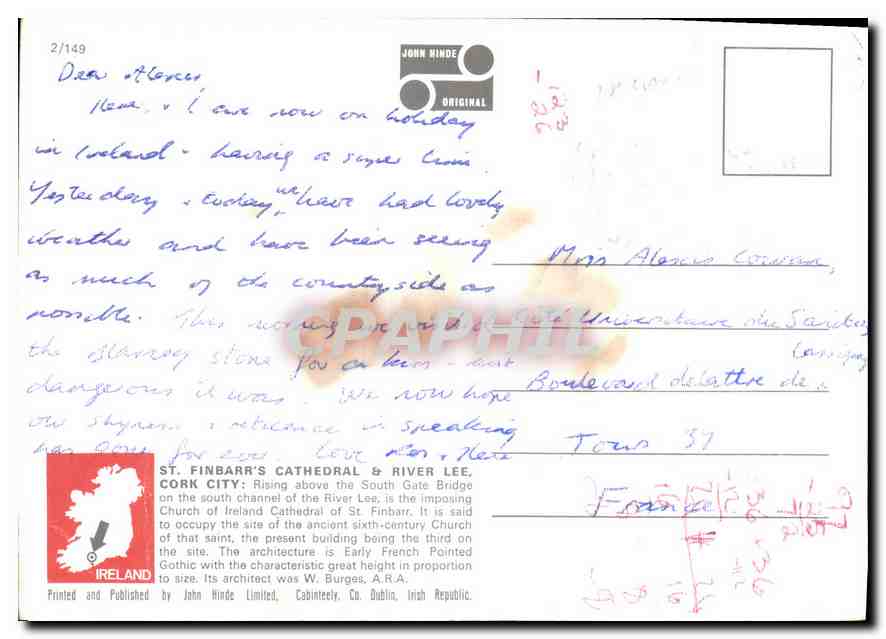 2/149
JOHN HINDE
ORIGINAL
Dear Alexis,
& I are now on holiday
in Ireland & having a super time.
Yesterday & today we have had lovely
weather and have been seeing
as much of the countryside as
possible. This morning we visited
the Blarney stone for a kiss - but
dangerous it was. We now hope
our shyness & reticence in speaking
has gone for ever. Love
Miss Alexis
Cité Universitaire du
Boulevard de Lattre de
Tours 37
France
CPAPHIL
ST. FINBARR'S CATHEDRAL & RIVER LEE,
CORK CITY: Rising above the South Gate Bridge
on the south channel of the River Lee, is the imposing
Church of Ireland Cathedral of St. Finbarr. It is said
to occupy the site of the ancient sixth-century Church
of that saint, the present building being the third on
the site. The architecture is Early French Pointed
Gothic with the characteristic great height in proportion
to size. Its architect was W. Burges, A.R.A.
IRELAND
Printed and Published by John Hinde Limited, Cabinteely, Co. Dublin, Irish Republic.